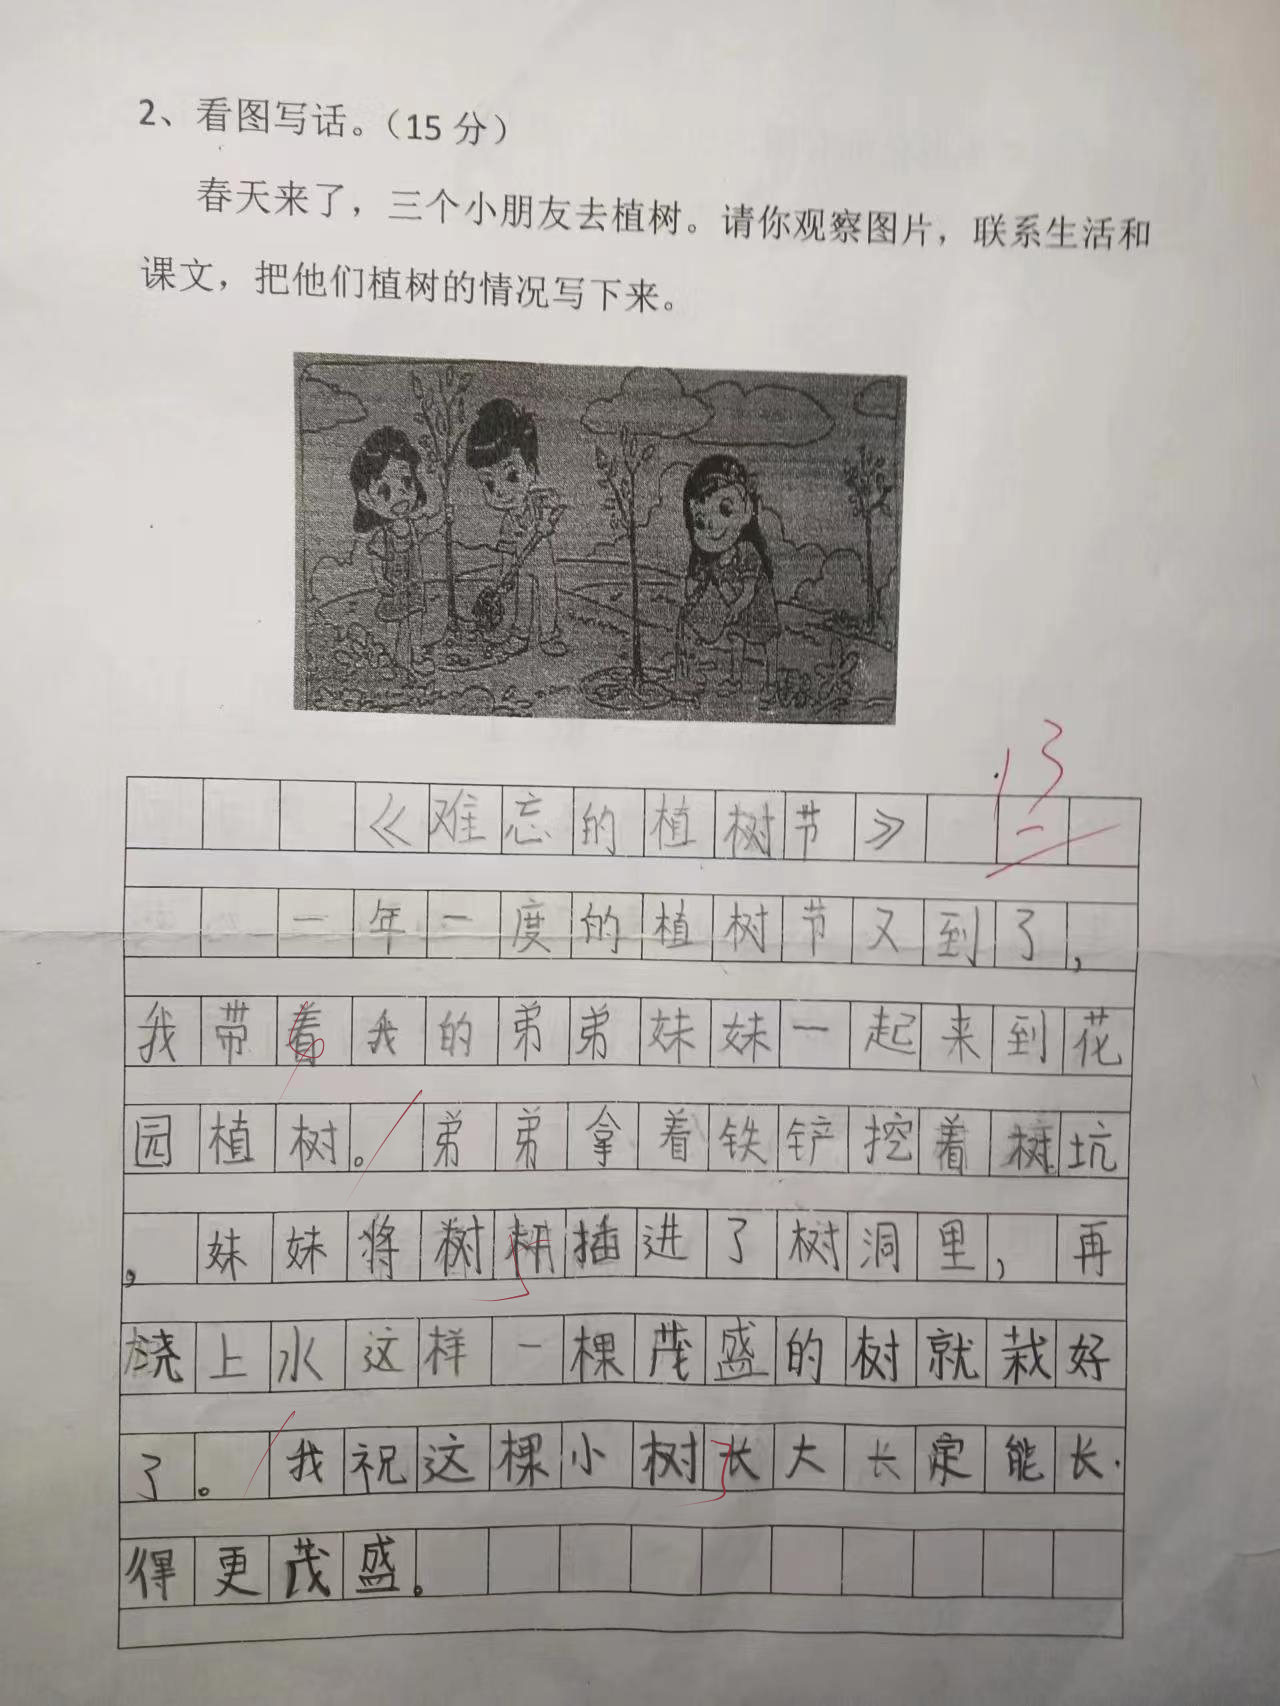 2、看图写话。（15 分）
春天来了，三个小朋友去植树。请你观察图片，联系生活和
课文，把他们植树的情况写下来。
13
《难忘的植树节》
一年一度的植树节又到了，
我带着我的弟弟妹妹一起来到花
园植树。弟弟拿着铁铲挖着树坑
，妹妹将树插进了树洞里，再
浇上水这样一棵茂盛的树就栽好
了。我祝这棵小树长大长定能长
得更茂盛。